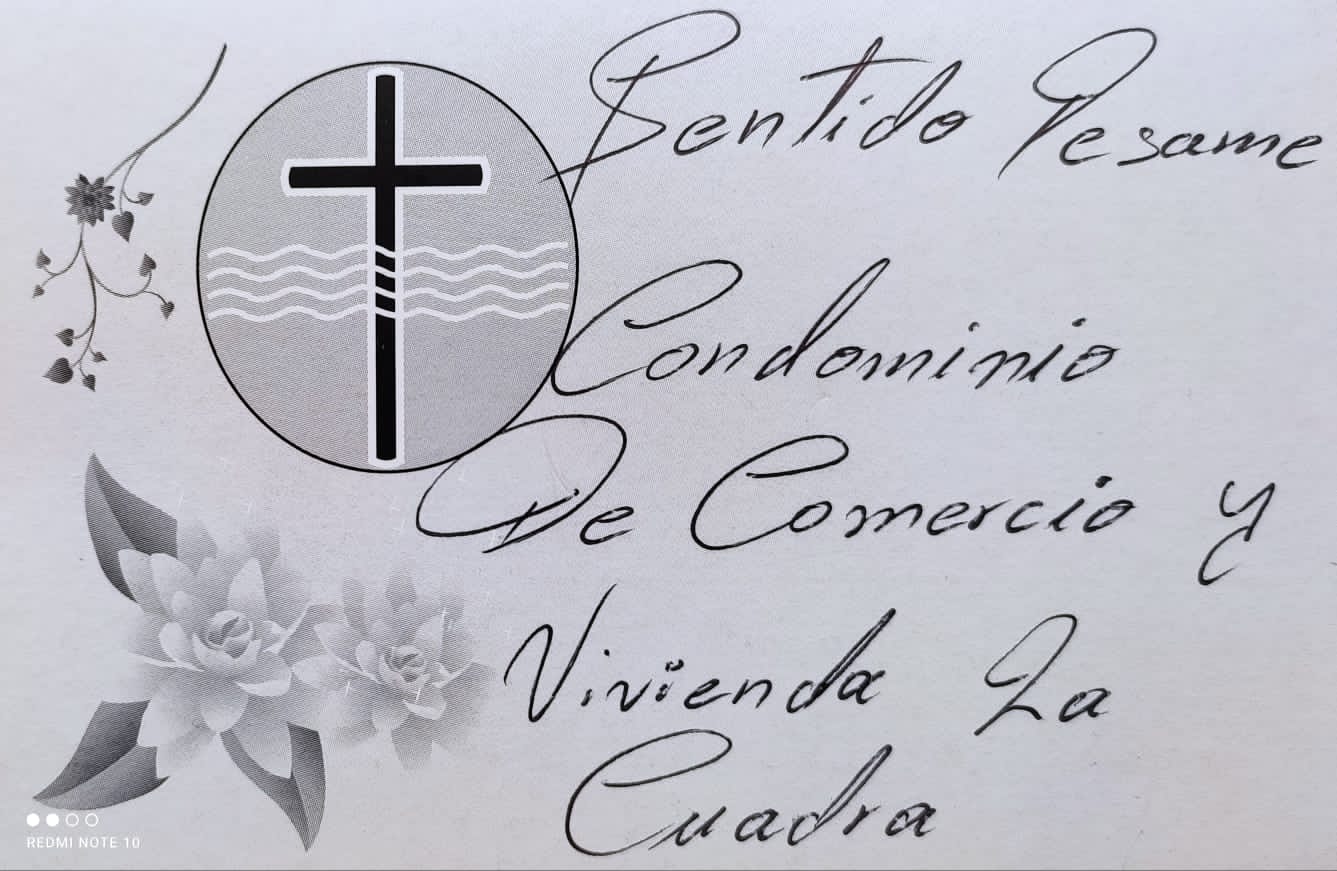 Sentido Pesame
Condominio
De Comercio y
Vivienda La
Cuadra
REDMI NOTE 10